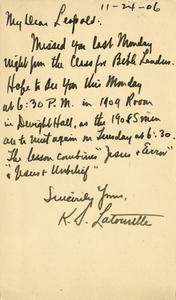 11-24-06
My Dear Leopold:
Missed you last Monday
night from the Class for Bible Leaders.
Hope to see you this Monday
at 6:30 P.M. in 1909 Room
in Dwight Hall, as the 1908 S men
are to meet again on Tuesday at 6:30.
The lesson combines "Jesus & Error"
& "Jesus & Unbelief"
Sincerely Yours,
K. S. Latourette